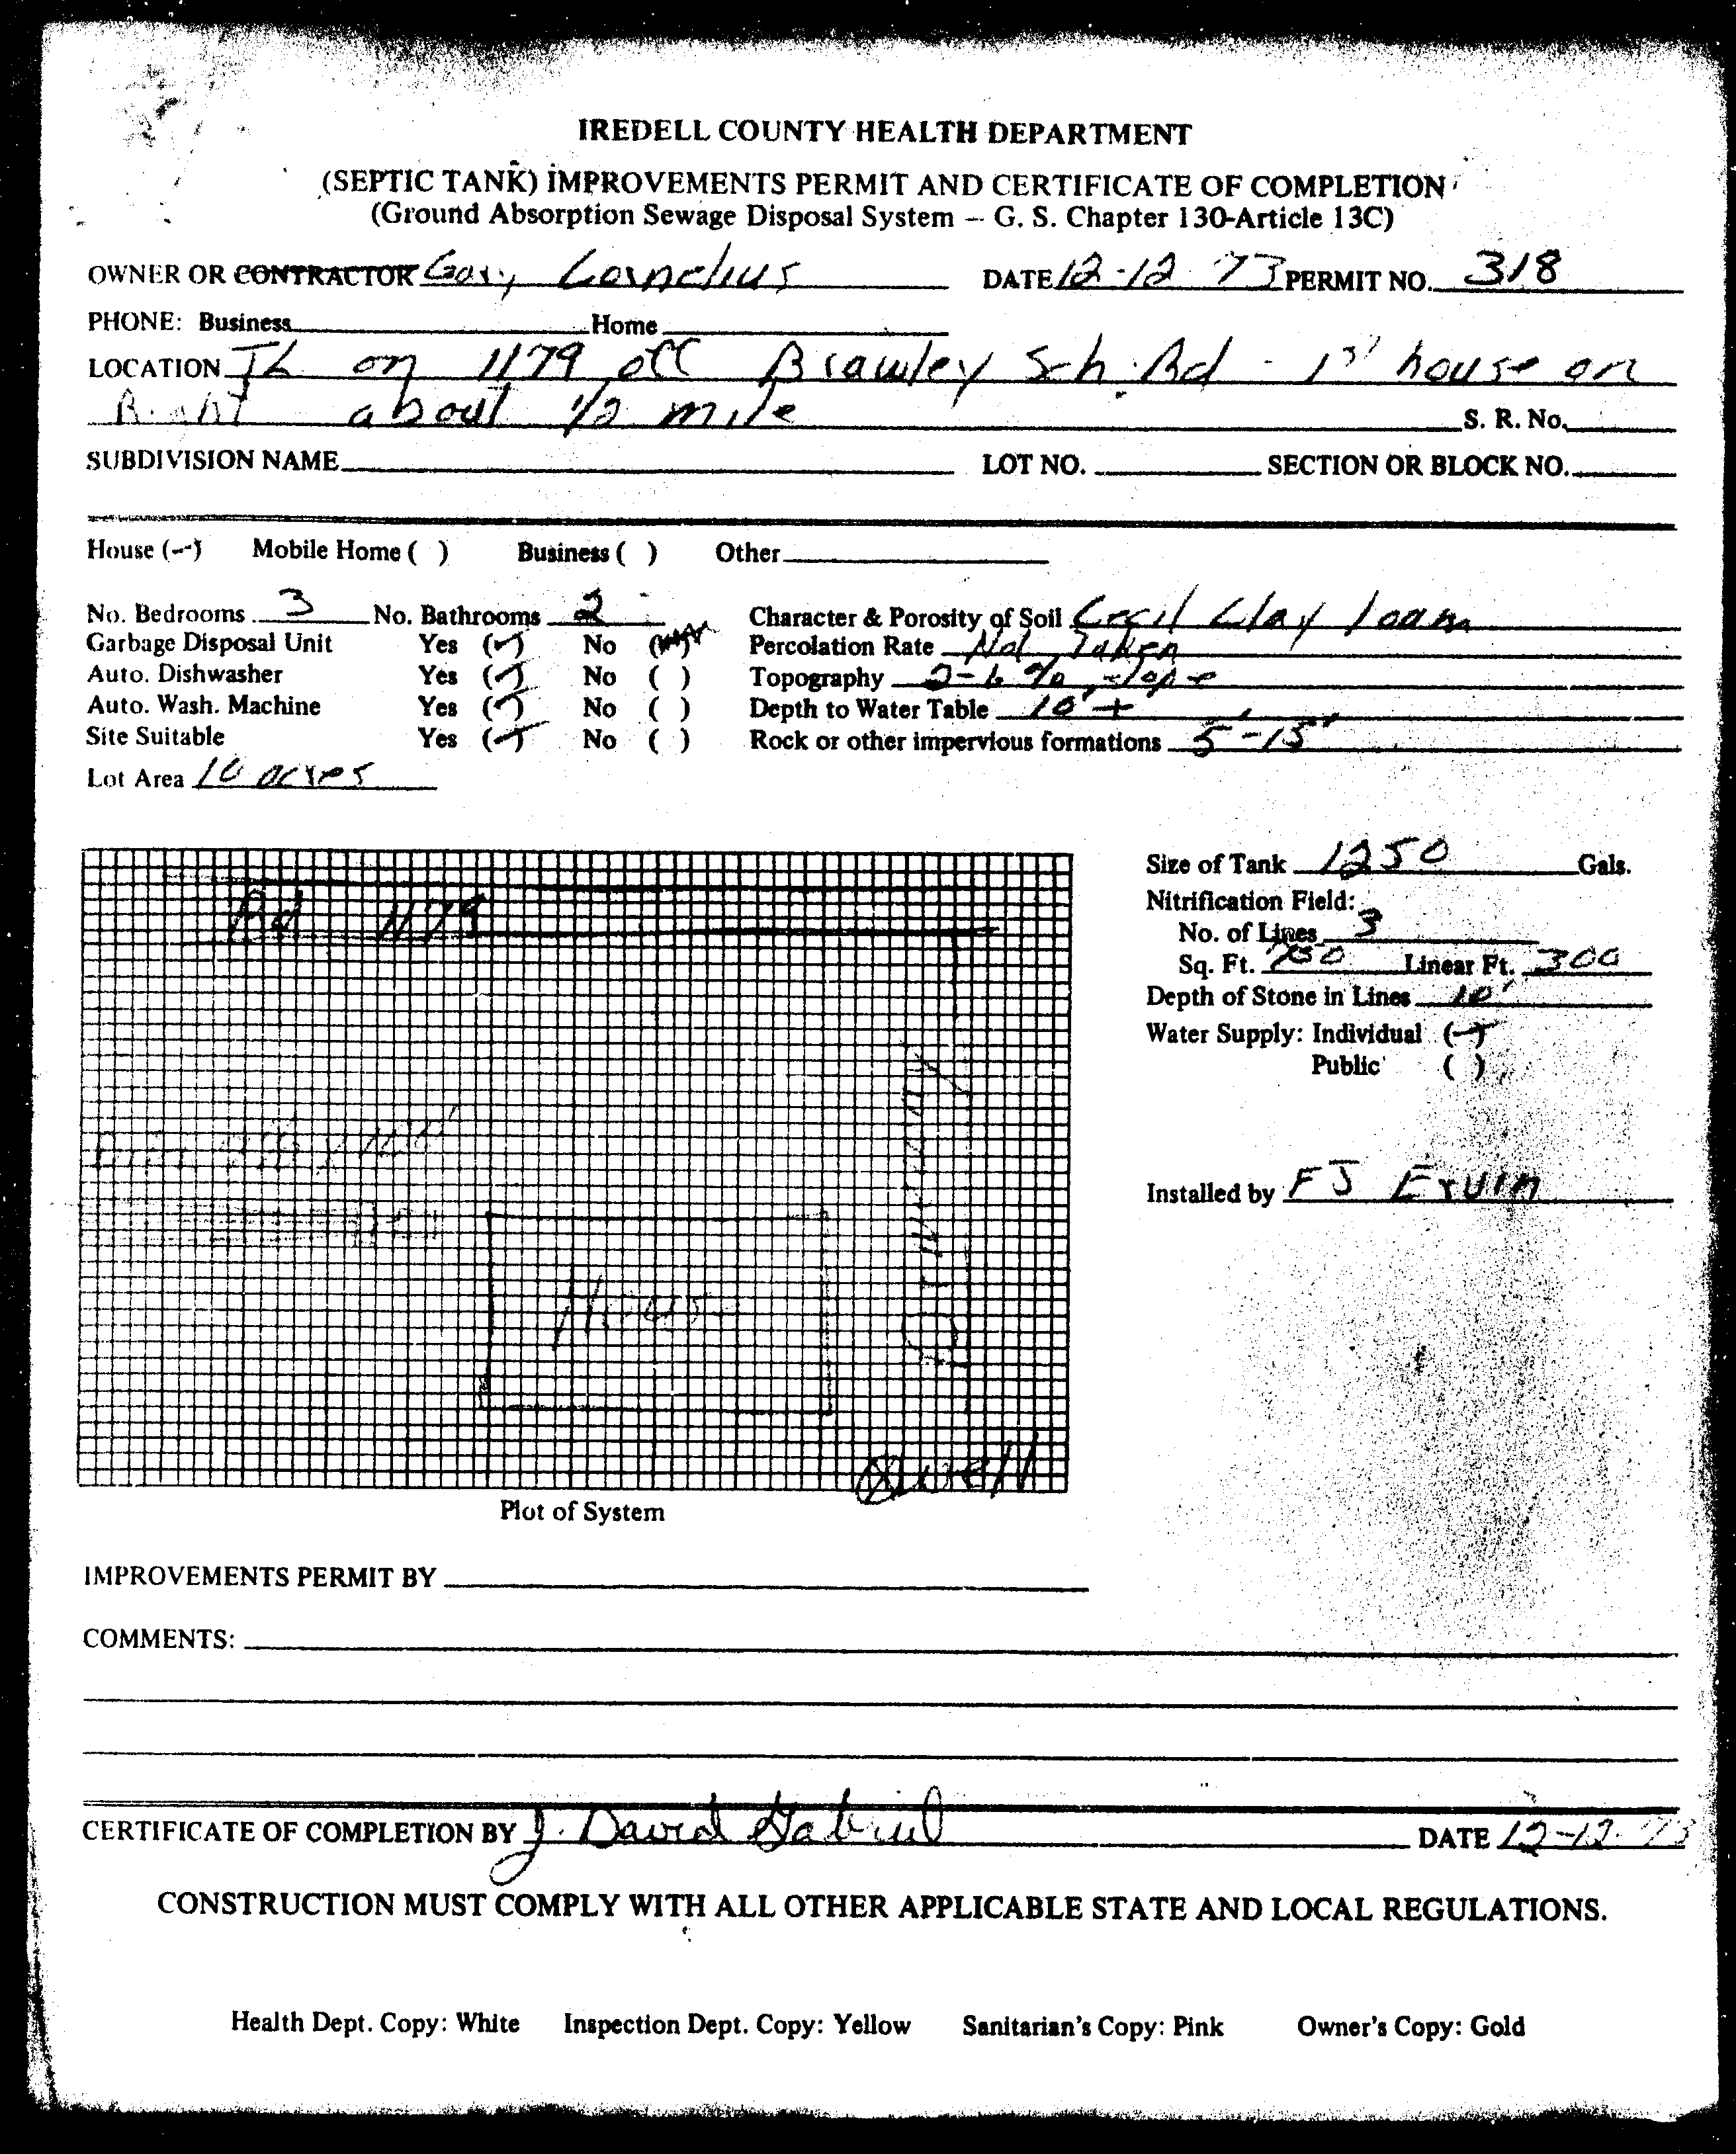 IREDELL COUNTY HEALTH DEPARTMENT
(SEPTIC TANK) IMPROVEMENTS PERMIT AND CERTIFICATE OF COMPLETION
(Ground Absorption Sewage Disposal System – G. S. Chapter 130-Article 13C)
OWNER OR CONTRACTOR Gary Cornelius DATE 12-12-73 PERMIT NO. 318
PHONE: Business Home
LOCATION TL on 1179 off Brawley Sch. Rd - 1st house on
Right about 1/2 mile S. R. No.
SUBDIVISION NAME LOT NO. SECTION OR BLOCK NO.
House (✓) Mobile Home ( ) Business ( ) Other
No. Bedrooms 3 No. Bathrooms 2 Character & Porosity of Soil Cecil Clay loam
Garbage Disposal Unit Yes (✓) No ( ) Percolation Rate Not Taken
Auto. Dishwasher Yes (✓) No ( ) Topography 2-6% slope
Auto. Wash. Machine Yes (✓) No ( ) Depth to Water Table 10'+
Site Suitable Yes (✓) No ( ) Rock or other impervious formations 5'-15'
Lot Area 10 acres
Rd 1179
House
Driveway
Well
Plot of System
Size of Tank 1250 Gals.
Nitrification Field:
No. of Lines 3
Sq. Ft. Linear Ft. 300
Depth of Stone in Lines 10"
Water Supply: Individual (✓)
Public ( )
Installed by F J Ervin
IMPROVEMENTS PERMIT BY
COMMENTS:
CERTIFICATE OF COMPLETION BY J. David Gabriel DATE 12-12-73
CONSTRUCTION MUST COMPLY WITH ALL OTHER APPLICABLE STATE AND LOCAL REGULATIONS.
Health Dept. Copy: White Inspection Dept. Copy: Yellow Sanitarian's Copy: Pink Owner's Copy: Gold